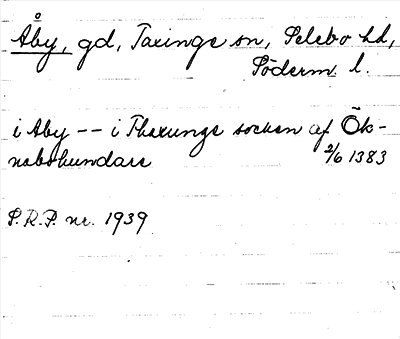 Åby, gd, Taxinge sn, Selebo hd,
Söderm. l.
i Aby -- i Thaxunge socken af Ök-
nabohundare 2/6 1383
S.R.P. nr. 1939